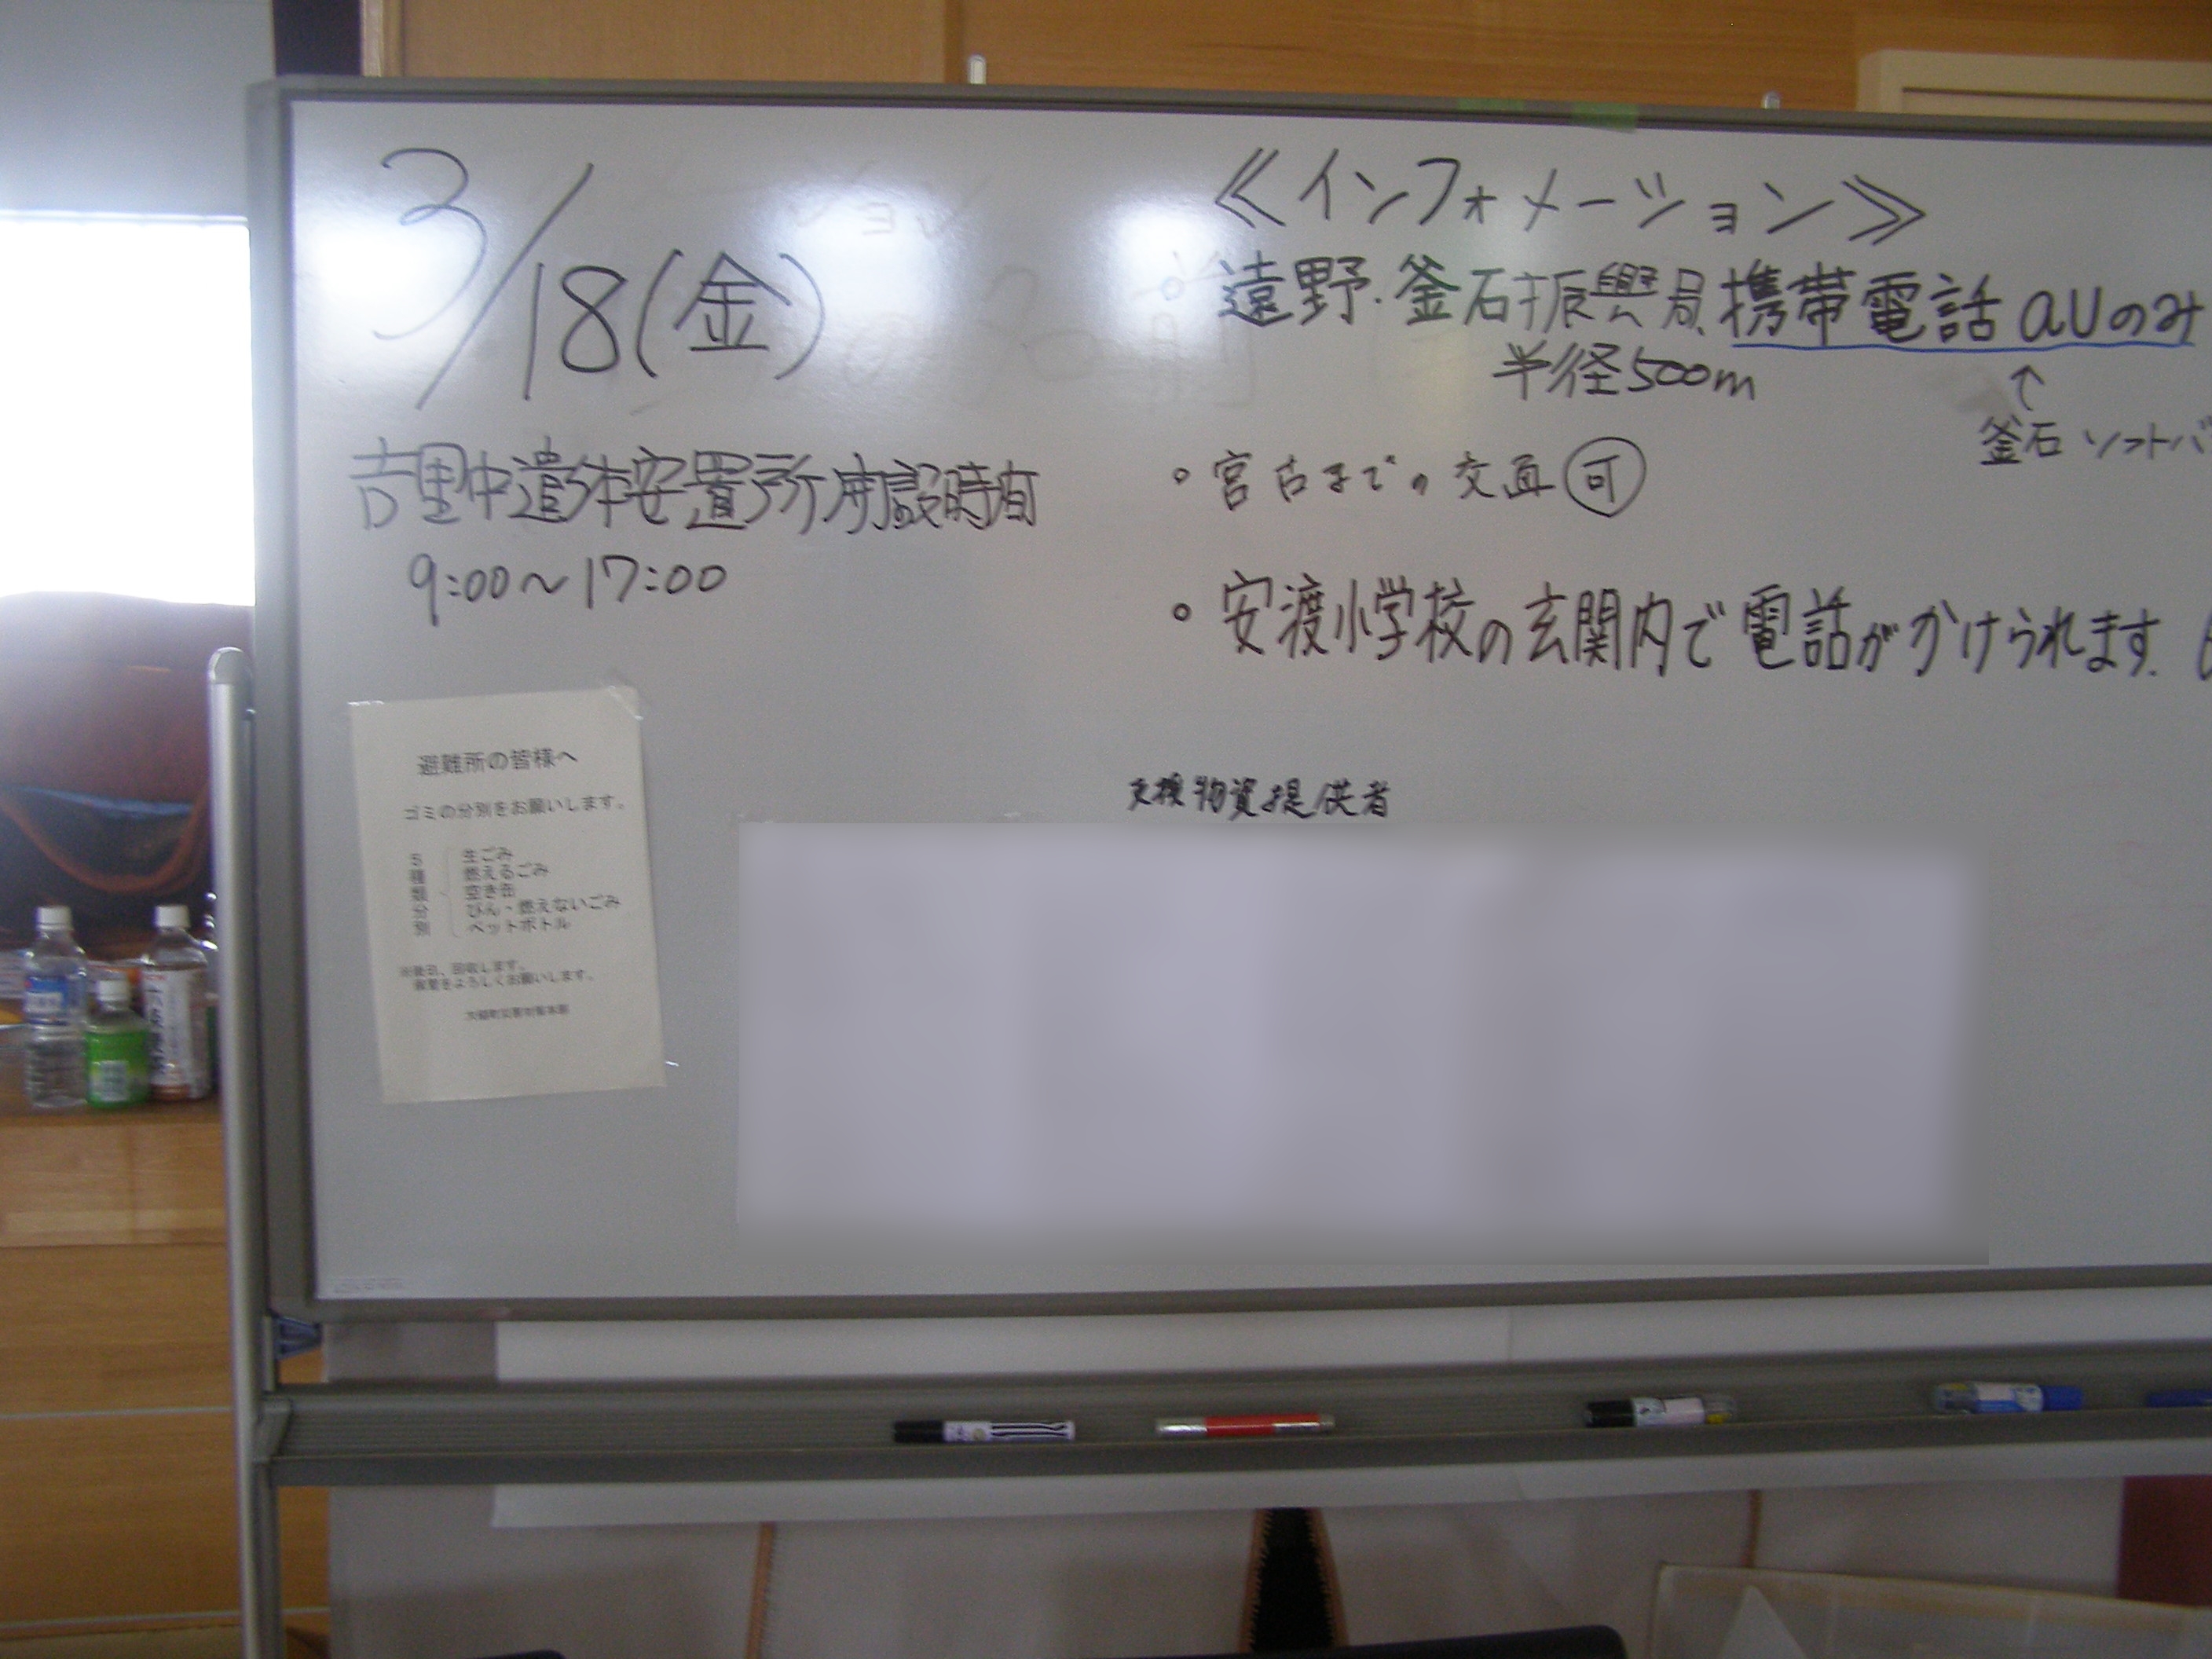 3/18(金)
吉里中遺体安置所開設時間
9:00〜17:00
≪インフォメーション≫
遠野・釜石振興局 携帯電話 auのみ
半径500m
↑
釜石 ソフトバ
・宮古までの交通 可
・安渡小学校の玄関内で電話がかけられます.
支援物資提供者
避難所の皆様へ
ゴミの分別をお願いします。
5種類分別
生ごみ
燃えるごみ
空き缶
びん・燃えないごみ
ペットボトル
※後日、回収します。
保管をよろしくお願いします。
大槌町災害対策本部